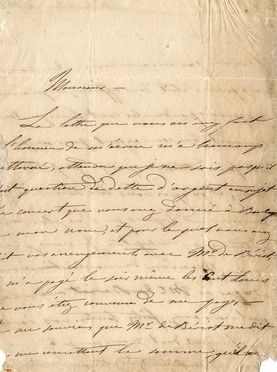 Monsieur —
La lettre que vous m'avez fait
l'honneur de m'écrire m'a beaucoup
attendu que je ne sais pas qu'il
question de dette d'argent
concert que vous avez donné à
mon nom, et pour le quel vous avez
vos arrangements avec Mr. de
m'a payé le soir même les Cent Louis
vous étiez convenu de me payer —
me souviens que Mr. de Bériot me dit
me remettant la somme qu'il